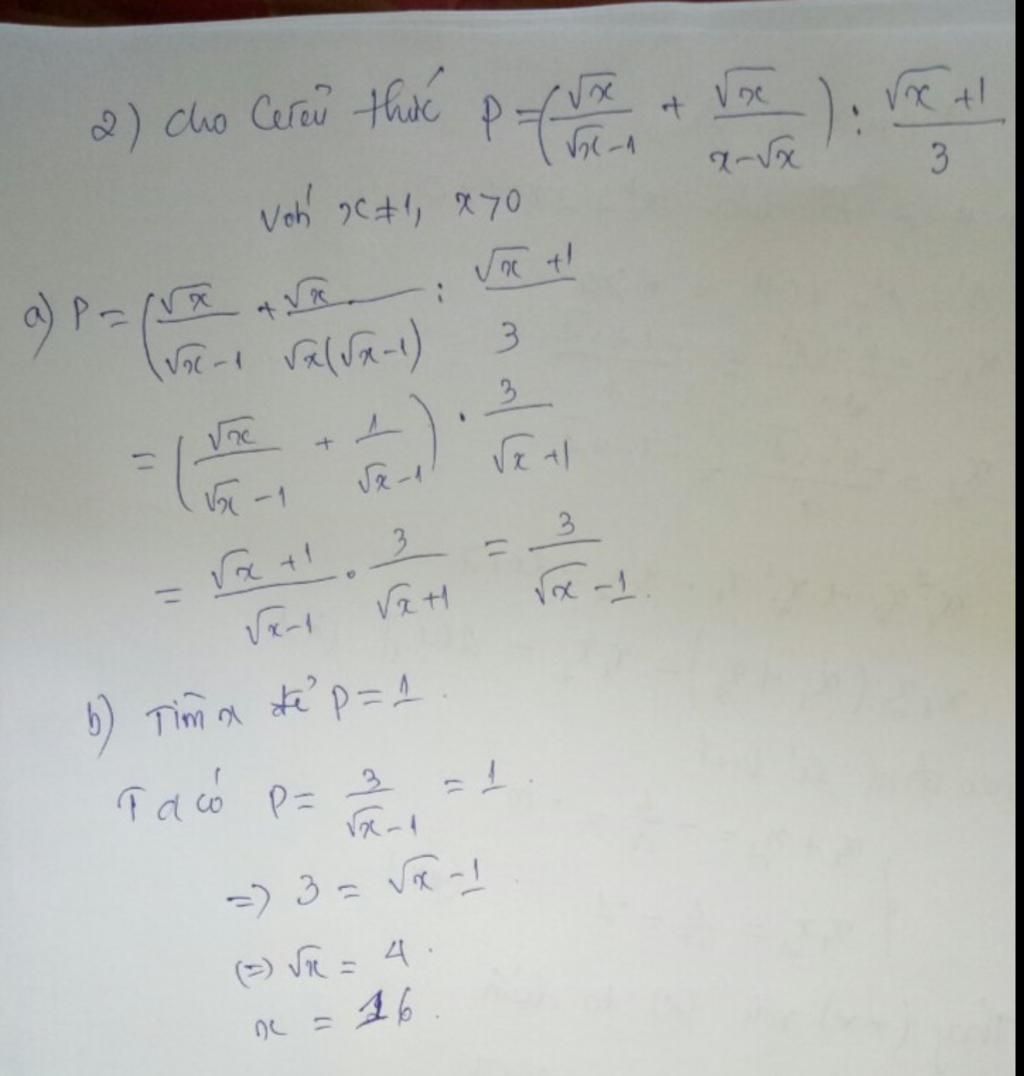 2) Cho biểu thức P = (√x/(√x-1) + √x/(x-√x)) : (√x+1)/3
với x≠1, x>0
a) P = (√x/(√x-1) + √x/(√x(√x-1)) : (√x+1)/3
= (√x/(√x-1) + 1/(√x-1)) · 3/(√x+1)
= (√x+1)/(√x-1) · 3/(√x+1) = 3/(√x-1).
b) Tìm x để P = 1.
Ta có P = 3/(√x-1) = 1.
=> 3 = √x-1
(=) √x = 4.
x = 16.